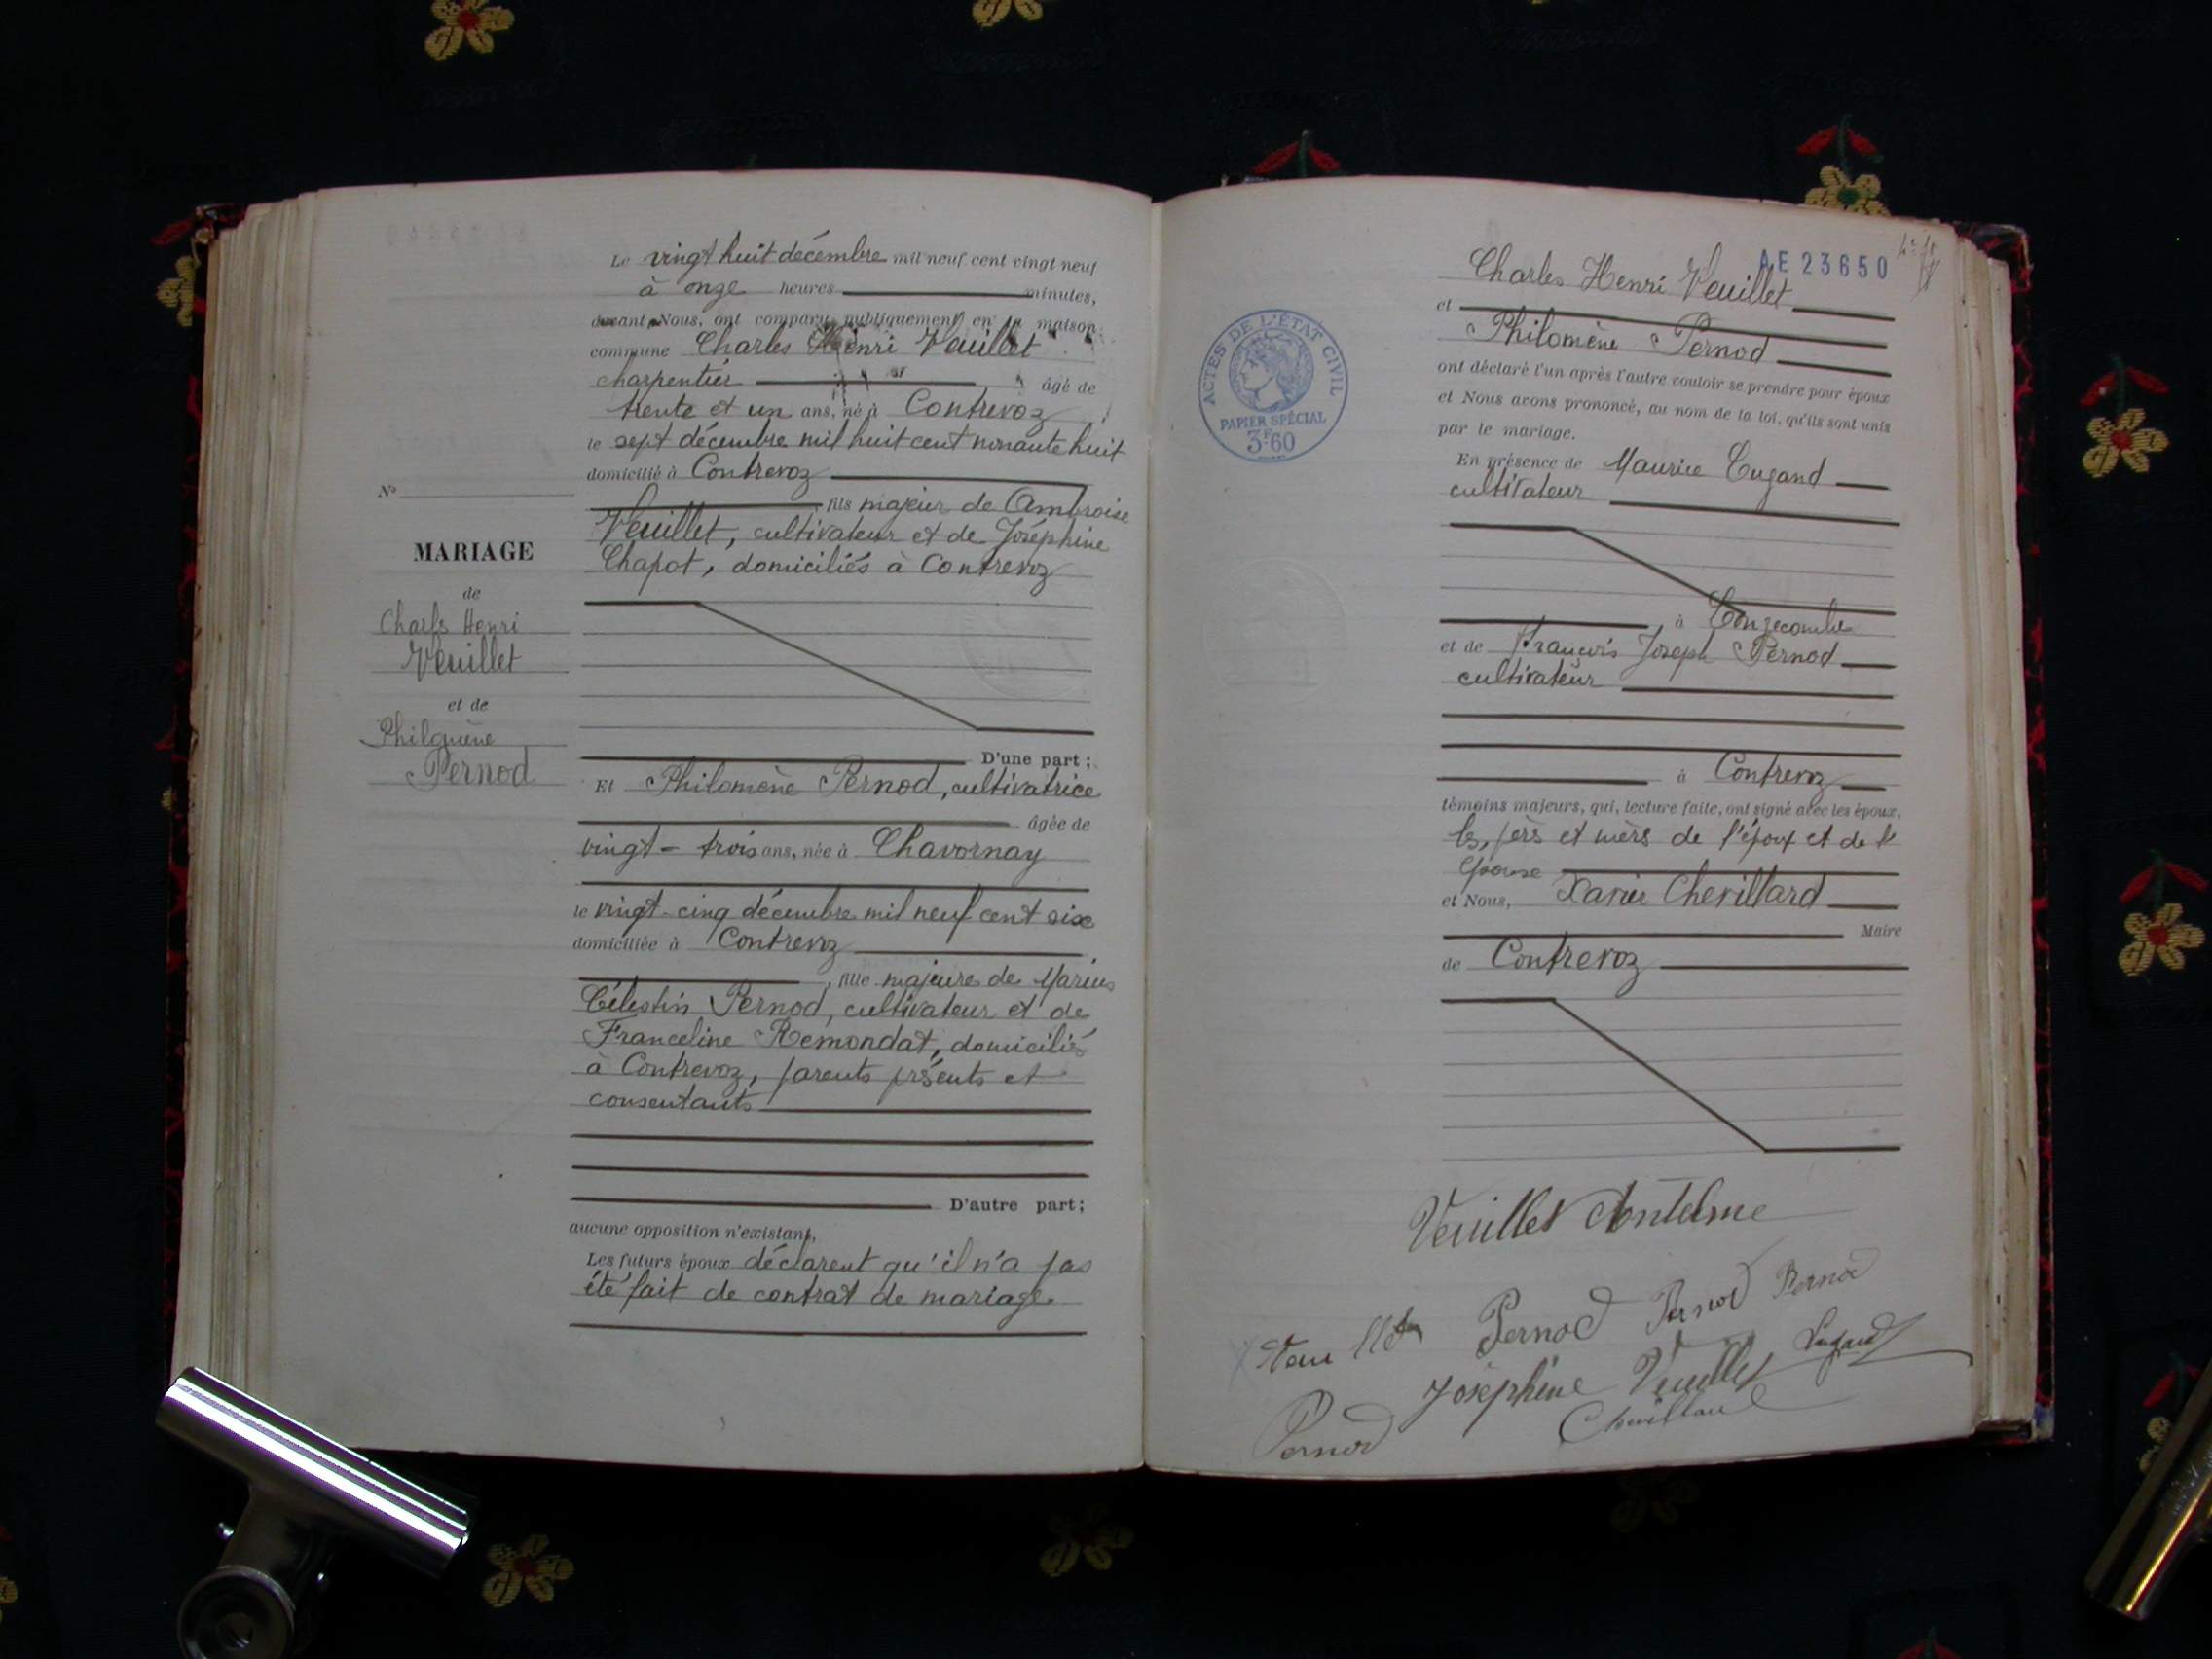 Le vingt huit décembre mil neuf cent vingt neuf
à onze heures minutes,
devant Nous, ont comparu publiquement en la maison
commune Charles Henri Veuillet
charpentier âgé de
trente et un ans, né à Contrevoz
le sept décembre mil huit cent nonante huit
domicilié à Contrevoz
fils majeur de Ambroise
Veuillet, cultivateur et de Joséphine
Chapot, domiciliés à Contrevoz
D'une part;
Et Philomène Pernod, cultivatrice
âgée de
vingt-trois ans, née à Chavornay
le vingt-cinq décembre mil neuf cent six
domiciliée à Contrevoz
, fille majeure de Marius
Célestin Pernod, cultivateur et de
Franceline Remondat, domiciliés
à Contrevoz, parents présents et
consentants
D'autre part;
aucune opposition n'existant,
Les futurs époux déclarent qu'il n'a pas
été fait de contrat de mariage
No
MARIAGE
de
Charles Henri
Veuillet
et de
Philomène
Pernod
AE 23650
Charles Henri Veuillet
et
Philomène Pernod
ont déclaré l'un après l'autre vouloir se prendre pour époux
et Nous avons prononcé, au nom de la loi, qu'ils sont unis
par le mariage.
En présence de Maurice Cugand
cultivateur
, à
et de François Joseph Pernod
cultivateur
à Contrevoz
témoins majeurs, qui, lecture faite, ont signé avec les époux,
les pères et mères de l'époux et de l'
épouse
et Nous, Xavier Chevillard
Maire
de Contrevoz
ACTES DE L'ÉTAT CIVIL
PAPIER SPÉCIAL
3F60
Veuillet Antelme
Veuillet Pernod Pernod Pernod
Joséphine Veuillet
Pernod Chevillard